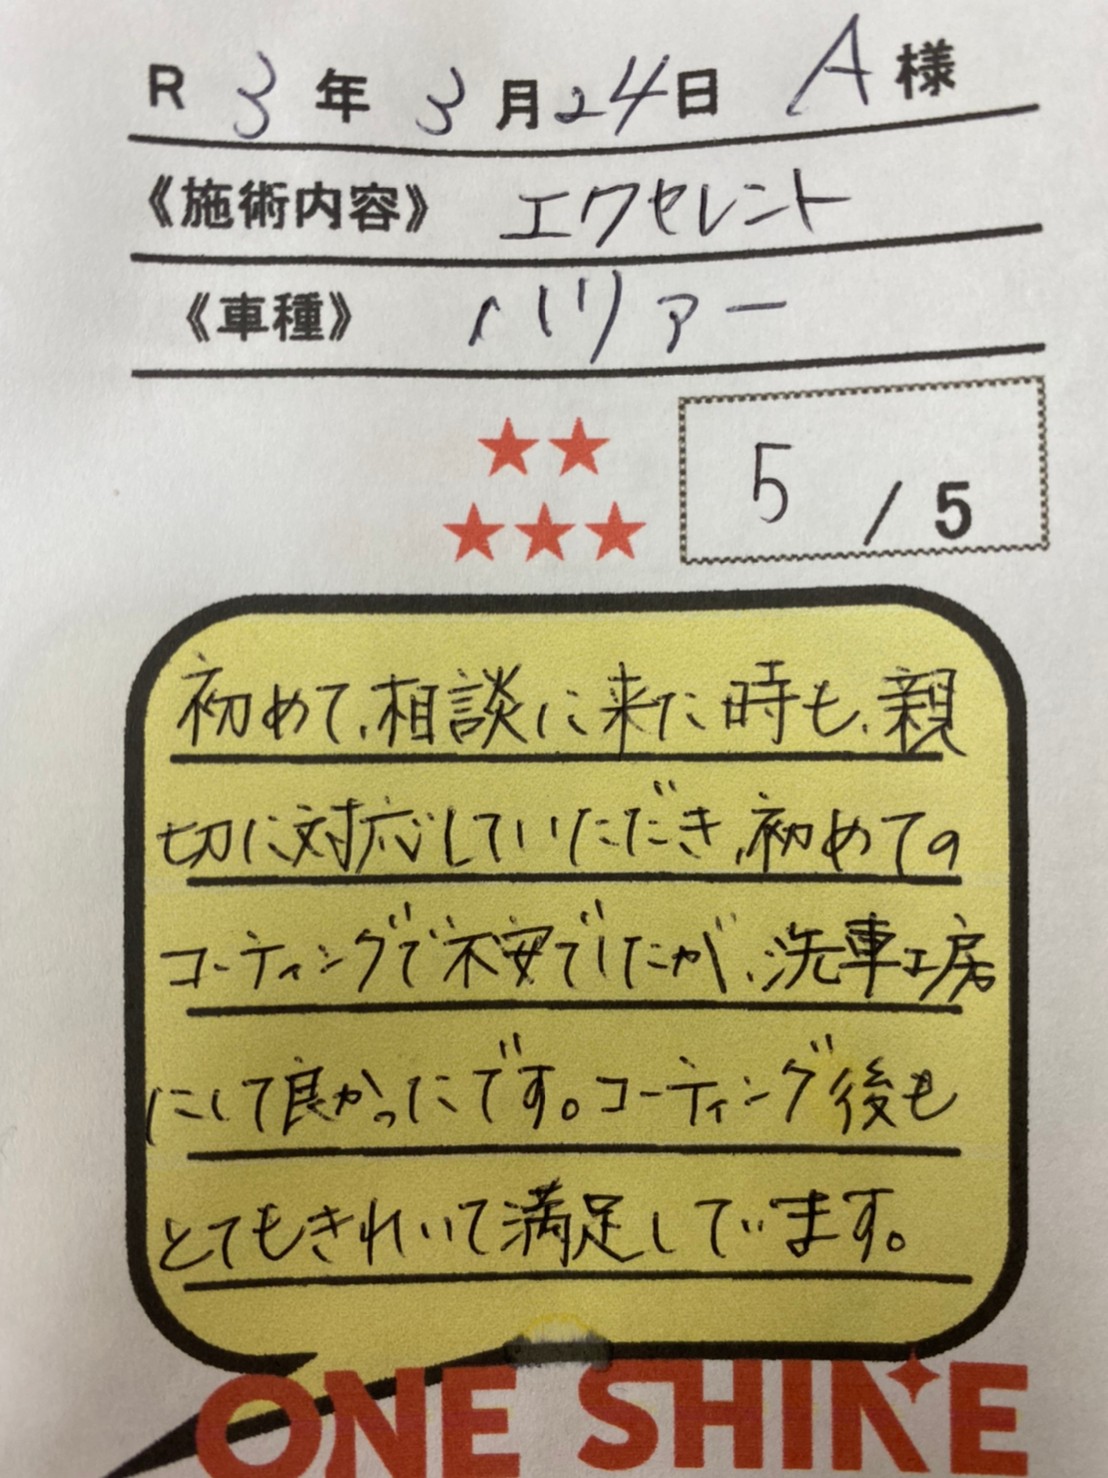 R 3年 3月24日 A様
《施術内容》 エクセレント
《車種》 ハリアー
5 / 5
初めて、相談に来た時も、親
切に対応していただき、初めての
コーティングで不安でしたが、洗車工房
にして良かったです。コーティング後も
とてもきれいで満足しています。
ONE SHINE